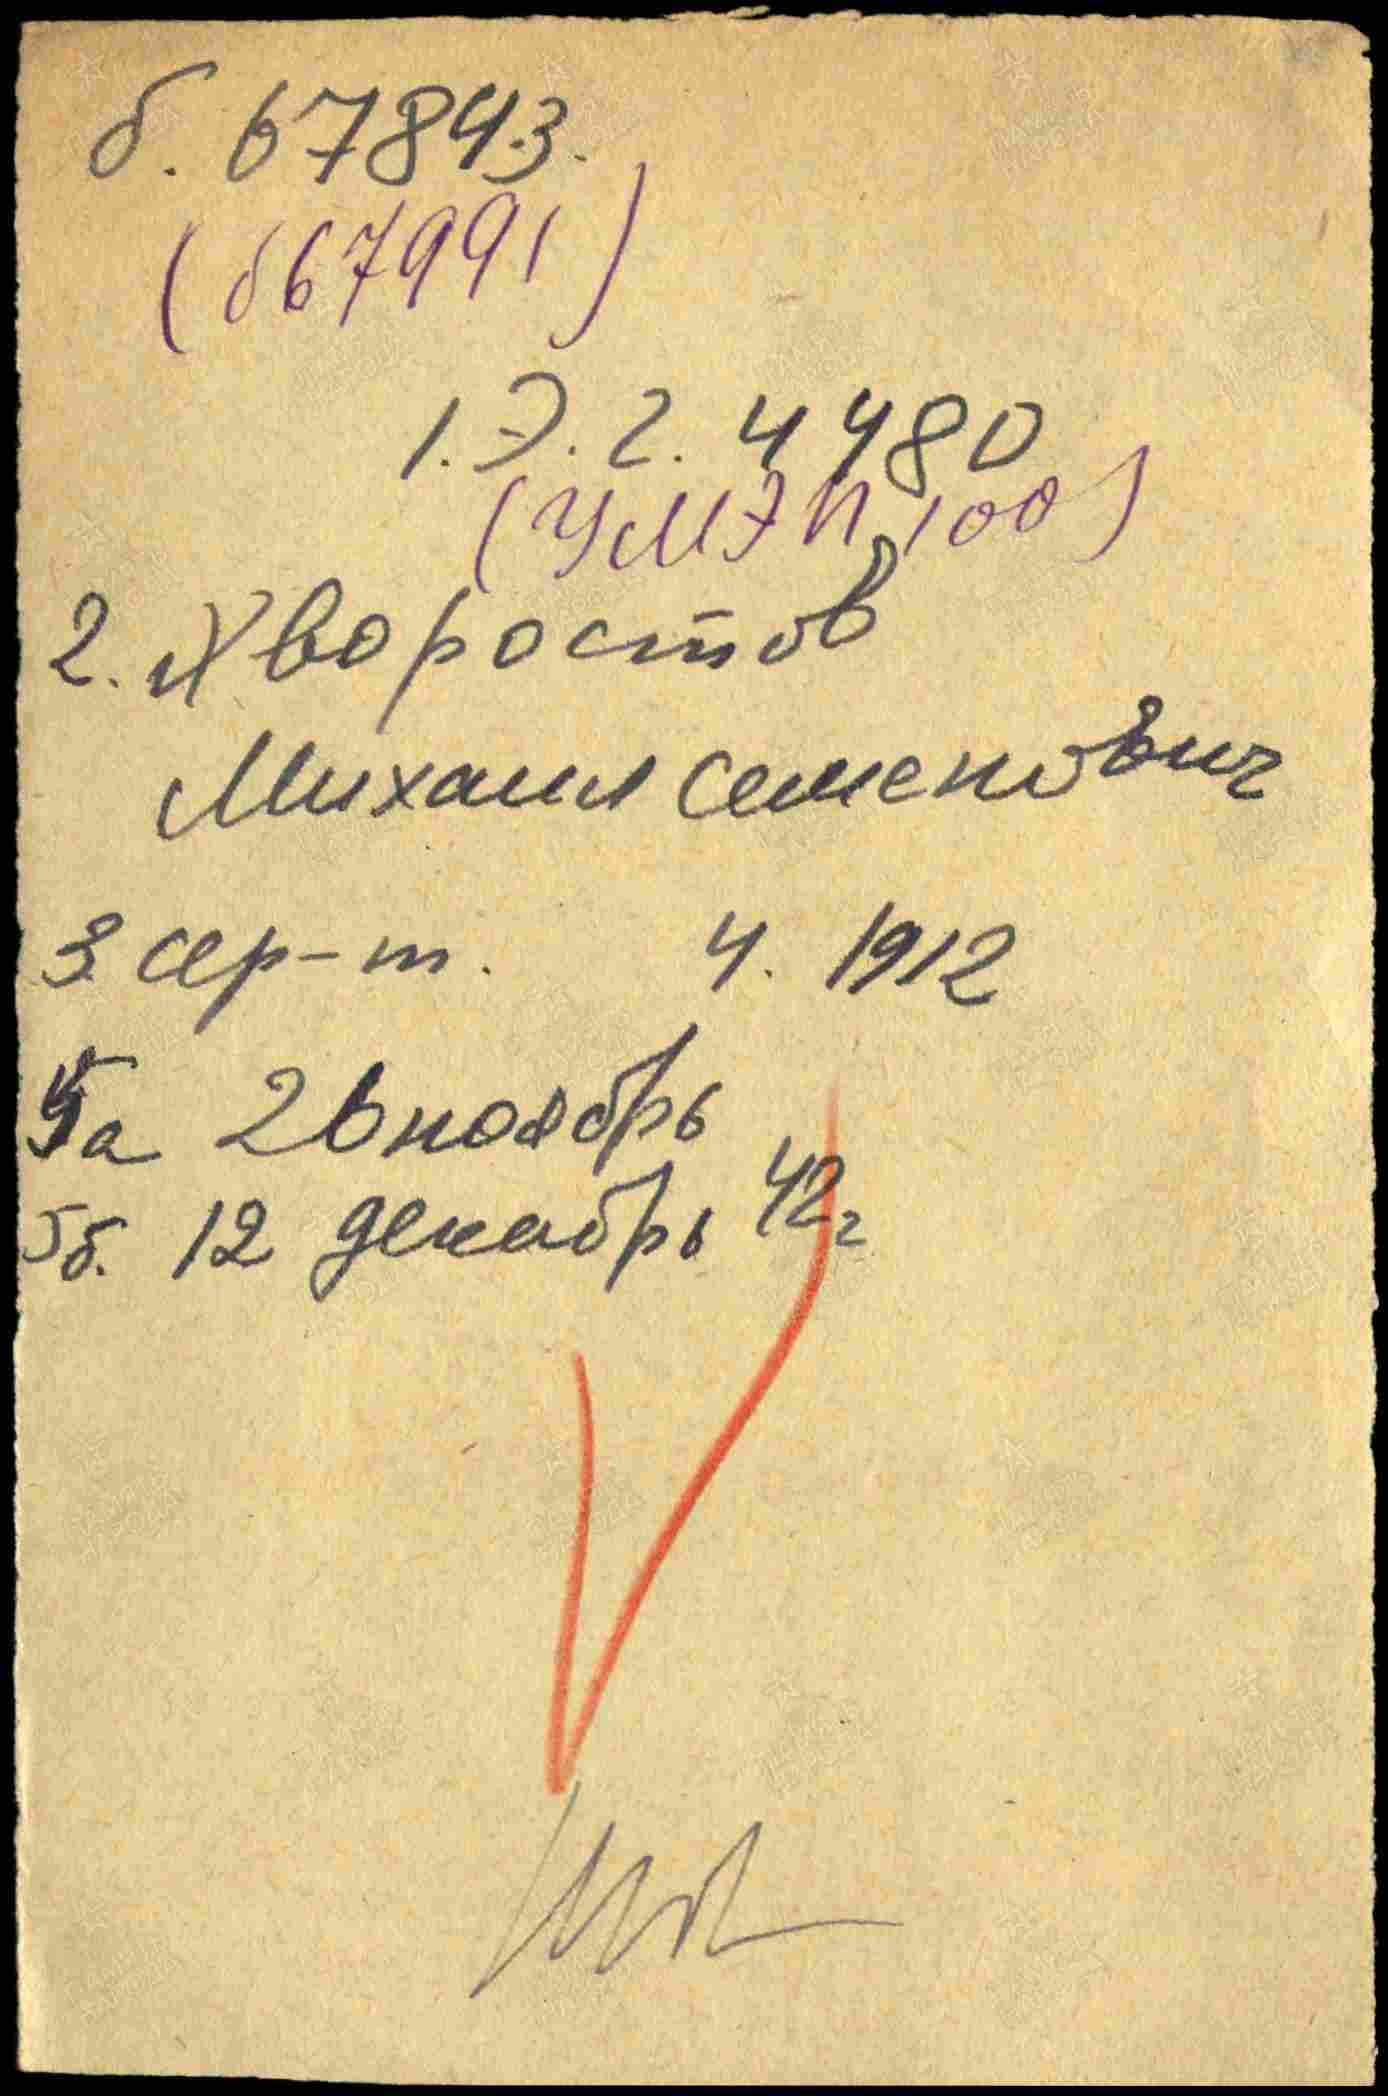 б. 67843.
(б67991)
1. Э. г. 4480
(УМЭП 100)
2. Хворостов
Михаил Семенович
3. сер-т. 4. 1912
5а 26 ноябрь
5б. 12 декабрь 42г